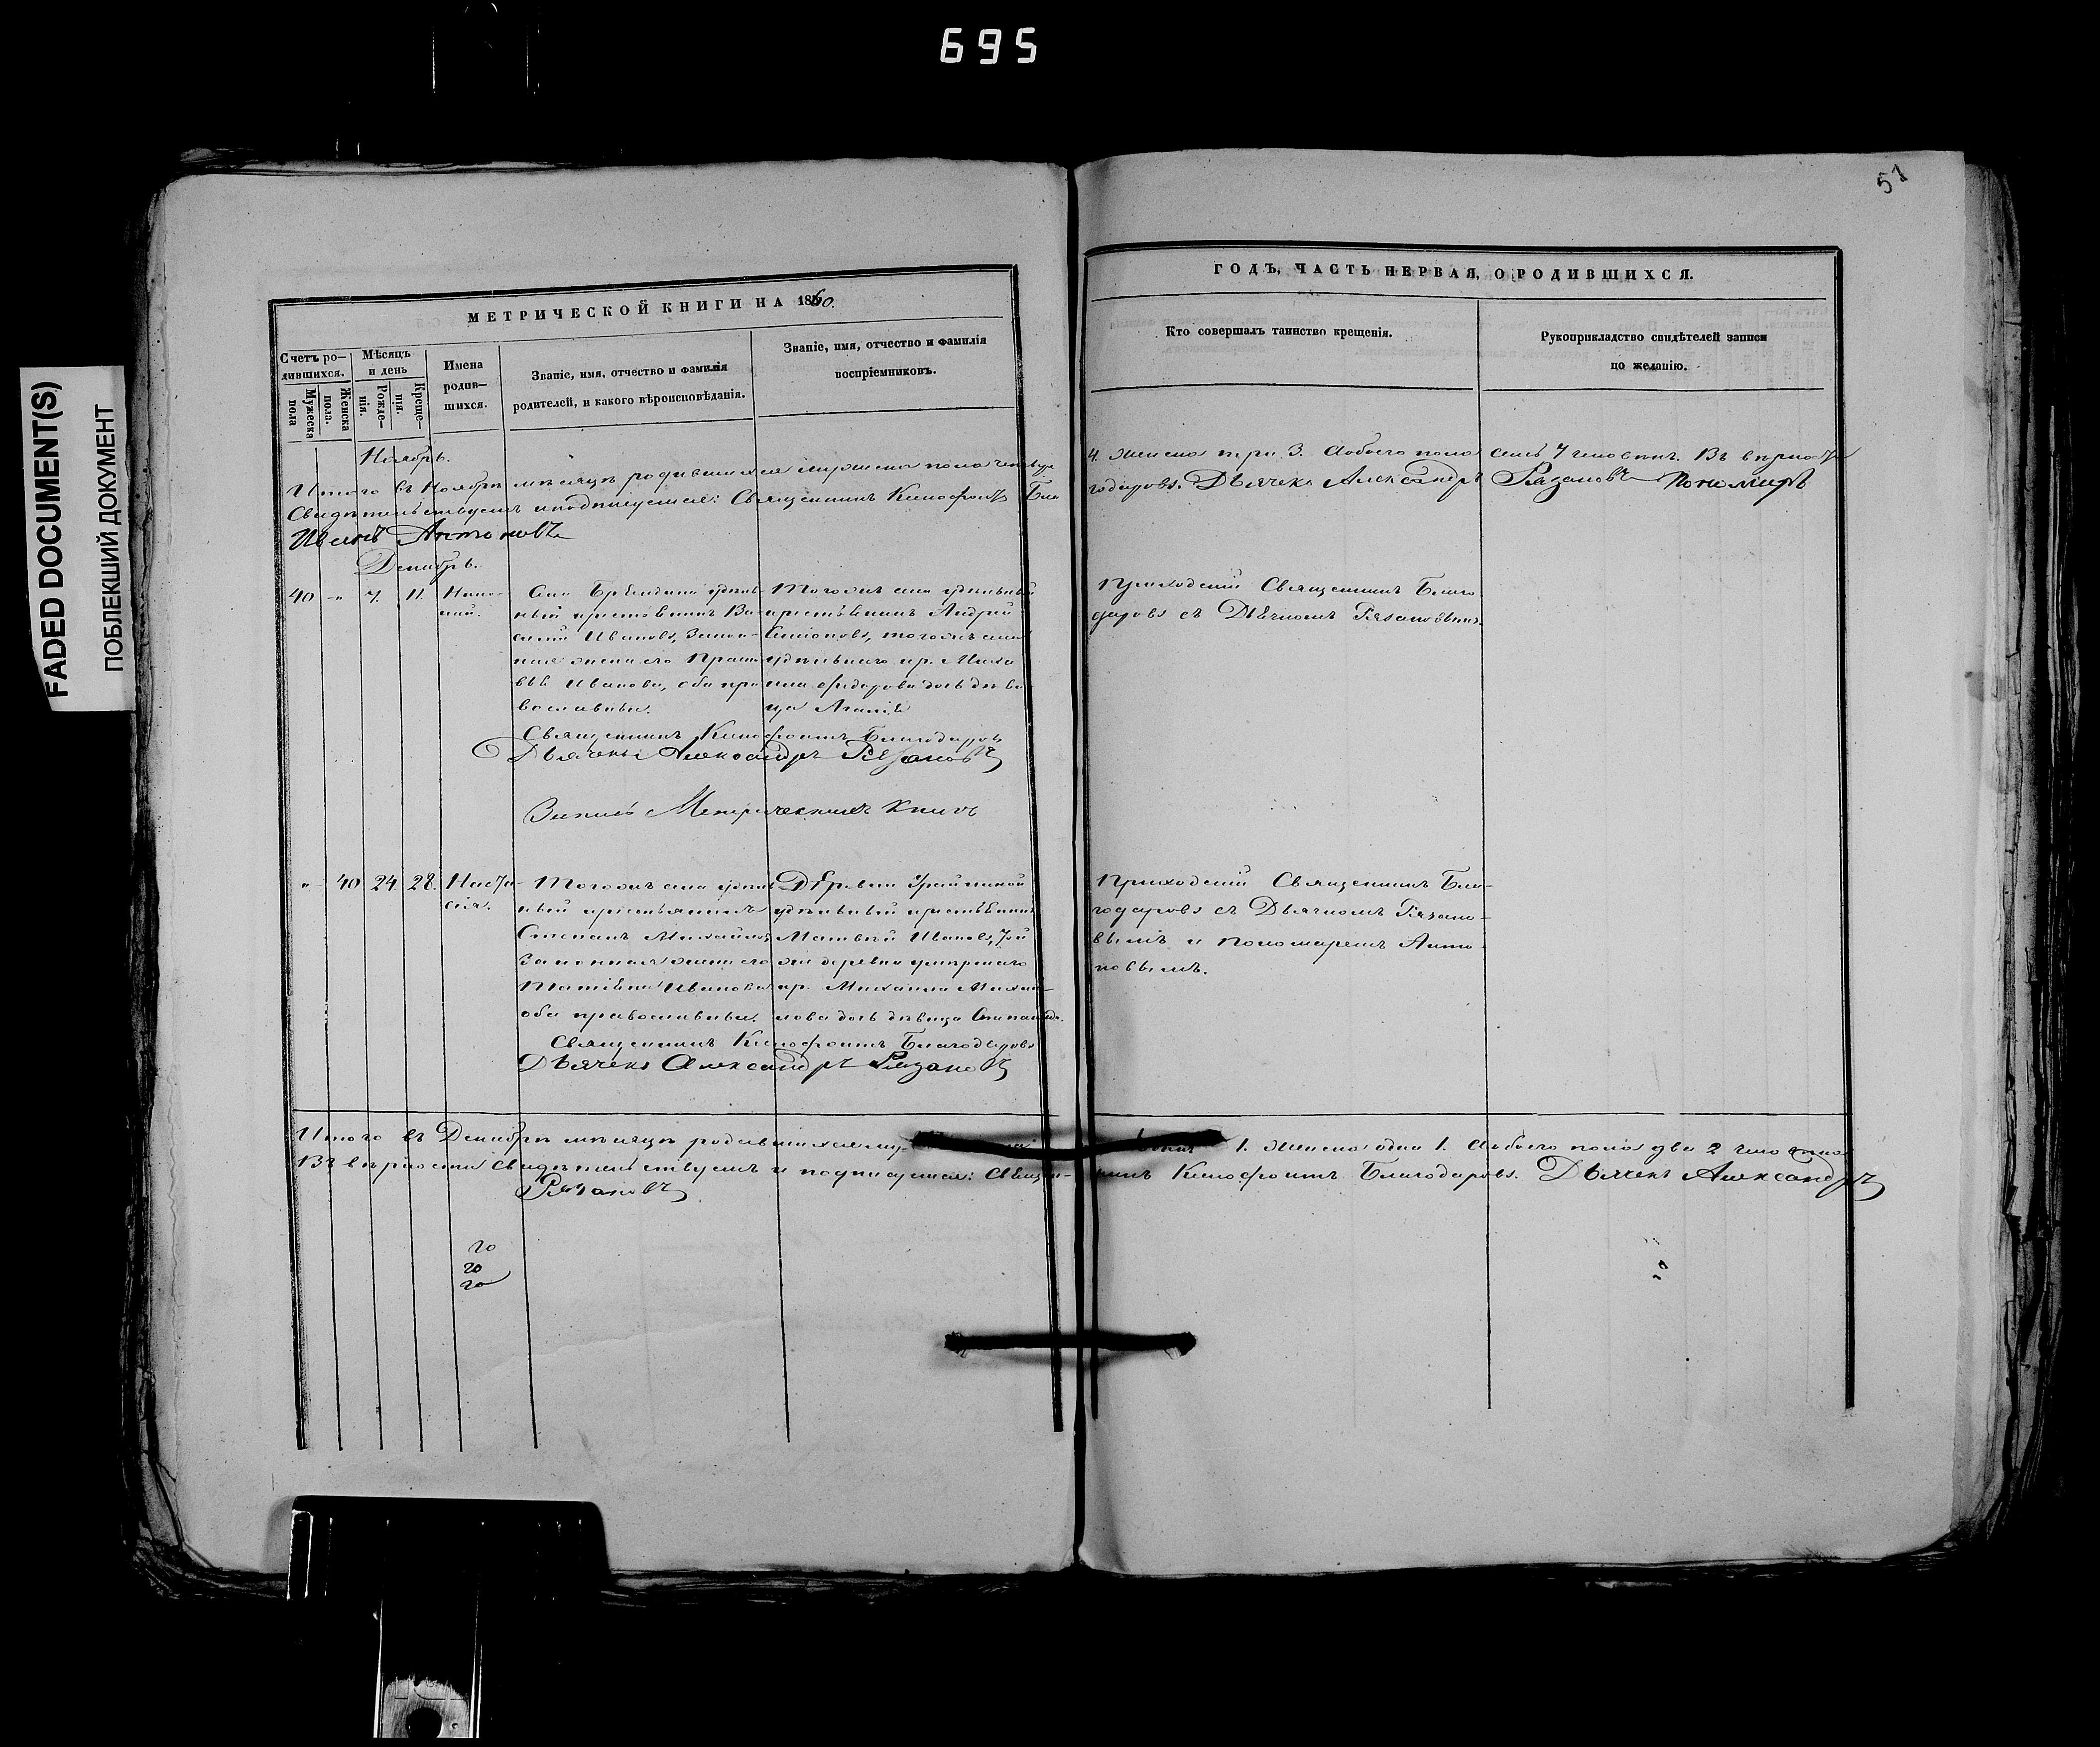 695
FADED DOCUMENT(S)
ПОБЛЕКШИЙ ДОКУМЕНТ
51
МЕТРИЧЕСКОЙ КНИГИ НА 1860.
ГОДЪ, ЧАСТЬ ПЕРВАЯ, О РОДИВШИХСЯ.
Счетъ ро-
дившихся.
Мужеска
пола
Женска
пола.
Мѣсяцъ
и день
Рожде-
нія.
Креще-
нія.
Имена
родив-
шихся.
Званіе, имя, отчество и фамилія
родителей, и какого вѣроисповѣданія.
Званіе, имя, отчество и фамилія
воспріемниковъ.
Кто совершалъ таинство крещенія.
Рукоприкладство свидѣтелей записи
по желанію.
Ноябрь.
Итого въ Ноябрѣ мѣсяцѣ родившихся мужеска пола четыре
4. женска три 3. Обоего пола семь 7 человѣкъ. Въ вѣрности
Свидѣтельствуемъ и подписуемся: Священникъ Ксенофонтъ Бла
годаровъ. Дьячекъ Александръ Рязановъ Пономарь
Иванъ Антоновъ
Декабрь.
40 -" 7. 11.
Села удѣль-
ный крестьянинъ Ва-
силій Иванов, закон-
ная жена его Праско-
вья Иванова, оба пра
вославные.
Тогожъ села удѣльный
крестьянинъ Андрей
тогожъ села
удѣльнаго кр. Михаи
ла Ѳедорова дочь дѣви
ца
Приходскій Священникъ Благо
даровъ съ Дьячкомъ Рязановымъ.
Священникъ Ксенофонтъ Благодаровъ
Дьячекъ Александръ Рязановъ
Запись Метрическихъ Книгъ
" 40 24. 28. Наста-
сія.
Тогожъ села удѣль
ный крестьянинъ
Степанъ Михайловъ,
Законная жена его
Татіана Иванова
оба православные.
Деревни
удѣльный крестьянинъ
Матвѣй Ивановъ, той
же деревни умершаго
кр. Михаила Михай-
лова дочь дѣвица Степанида.
Приходскій Священникъ Бла-
годаровъ съ Дьячкомъ Рязано-
вымъ и пономаремъ Анто-
новымъ.
Священникъ Ксенофонтъ Благодаровъ
Дьячекъ Александръ Рязановъ
Итого въ Декабрѣ мѣсяцѣ родившихся
1. женска одна 1. Обоего пола два 2 человѣка
Въ вѣрности свидѣтельствуемъ и подписуемся: Священ-
никъ Ксенофонтъ Благодаровъ. Дьячекъ Александръ
Рязановъ